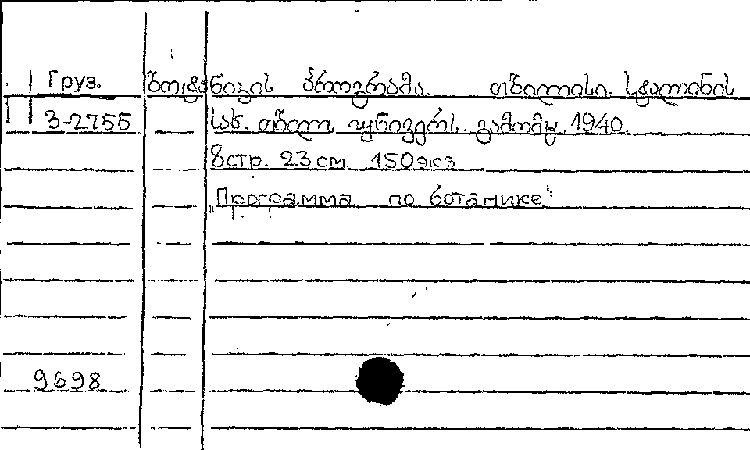 Груз. ბოტანიკის პროგრამა. თბილისი. სტალინის
3-2755 სახ. თბილ. უნივერს. გამომც. 1940.
8 стр. 23 см. 150 экз.
"Программа по ботанике"
9698